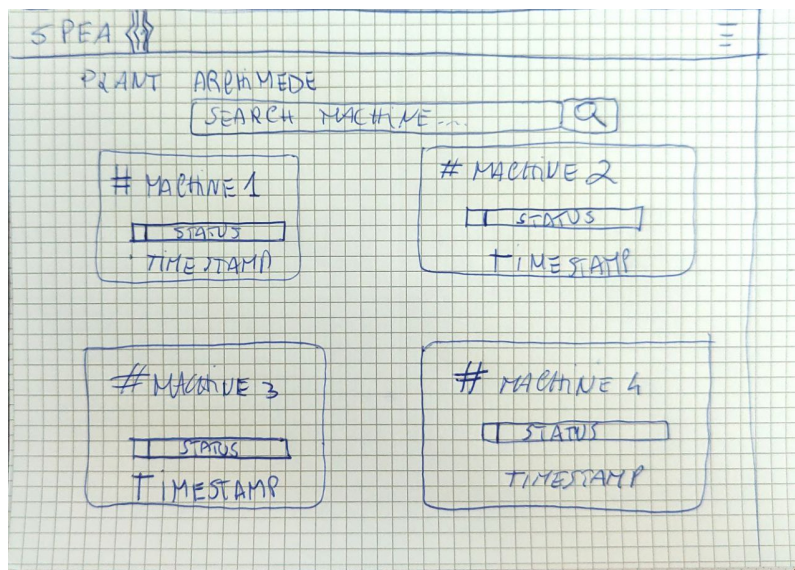 SPEA
PLANT ARCHIMEDE
SEARCH MACHINE...
# MACHINE 1
STATUS
TIMESTAMP
# MACHINE 2
STATUS
TIMESTAMP
# MACHINE 3
STATUS
TIMESTAMP
# MACHINE 4
STATUS
TIMESTAMP